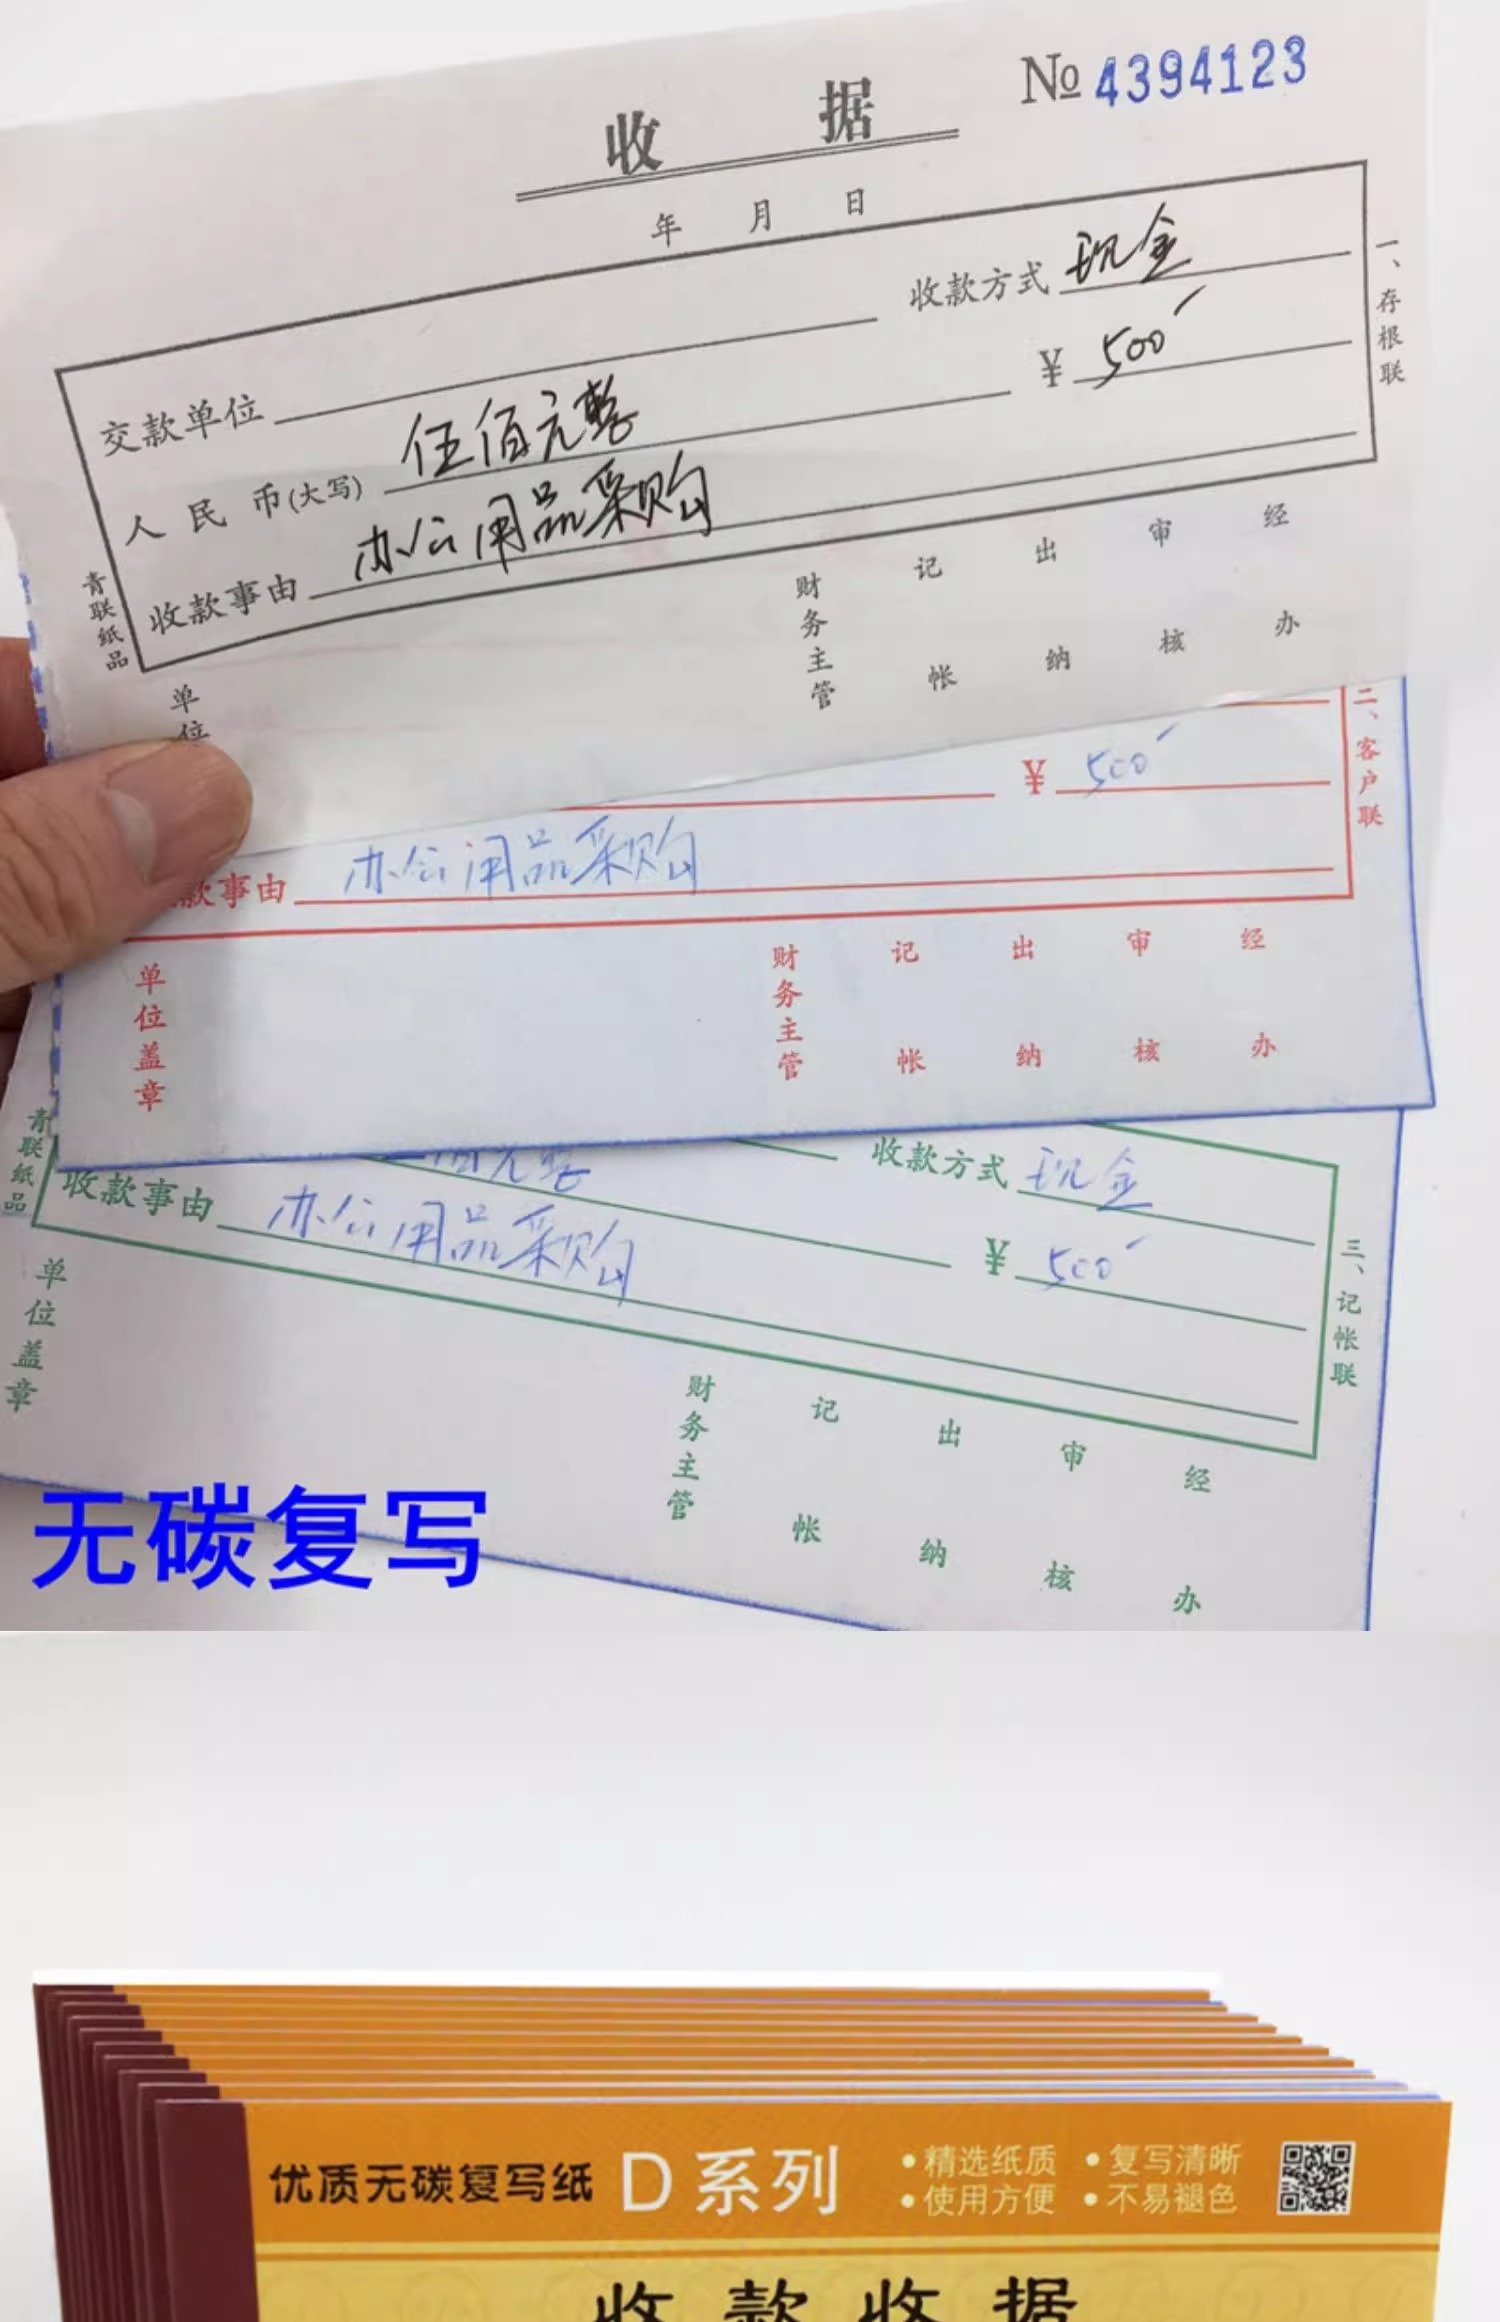 收 据
№ 4394123
年 月 日
收款方式 现金
交款单位
¥ 500
人民币(大写) 伍佰元整
收款事由 办公用品采购
一、存根联
青联纸品
单位
财务主管 记帐 出纳 审核 经办
¥ 500
款事由 办公用品采购
二、客户联
单位盖章
财务主管 记帐 出纳 审核 经办
青联纸品
佰元整
收款方式 现金
收款事由 办公用品采购
¥ 500
三、记帐联
单位盖章
财务主管 记帐 出纳 审核 经办
无碳复写
优质无碳复写纸 D系列
•精选纸质 •复写清晰
•使用方便 •不易褪色
收款收据